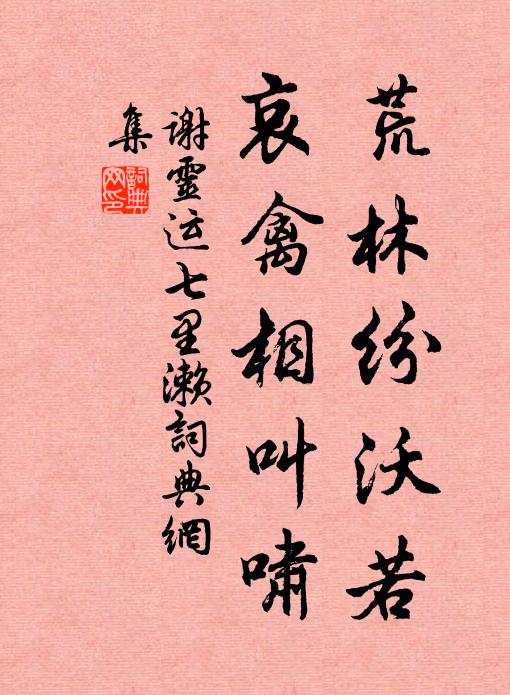 荒林纷沃若
哀禽相叫啸
谢灵运七里濑詞典網
集
詞典
网印